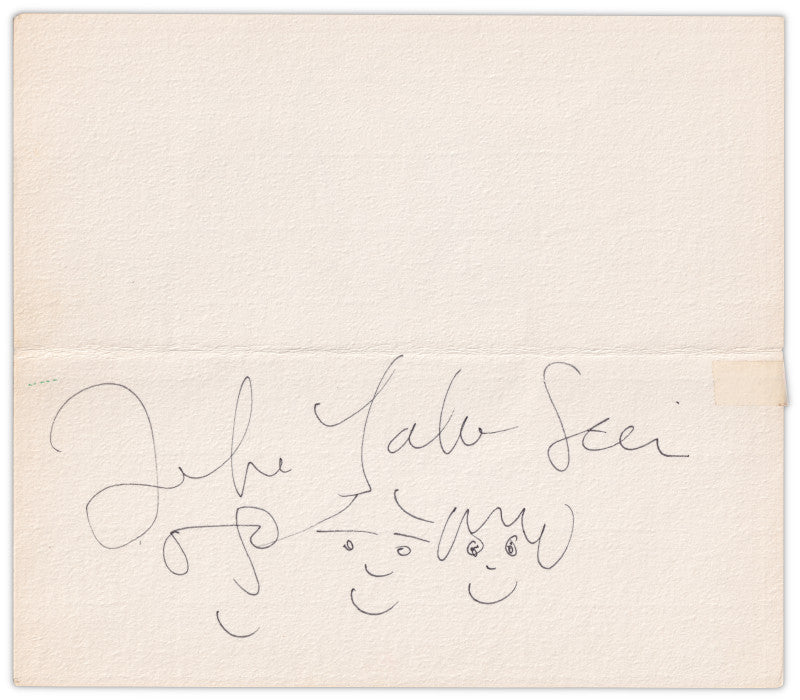 John Yoko Sean